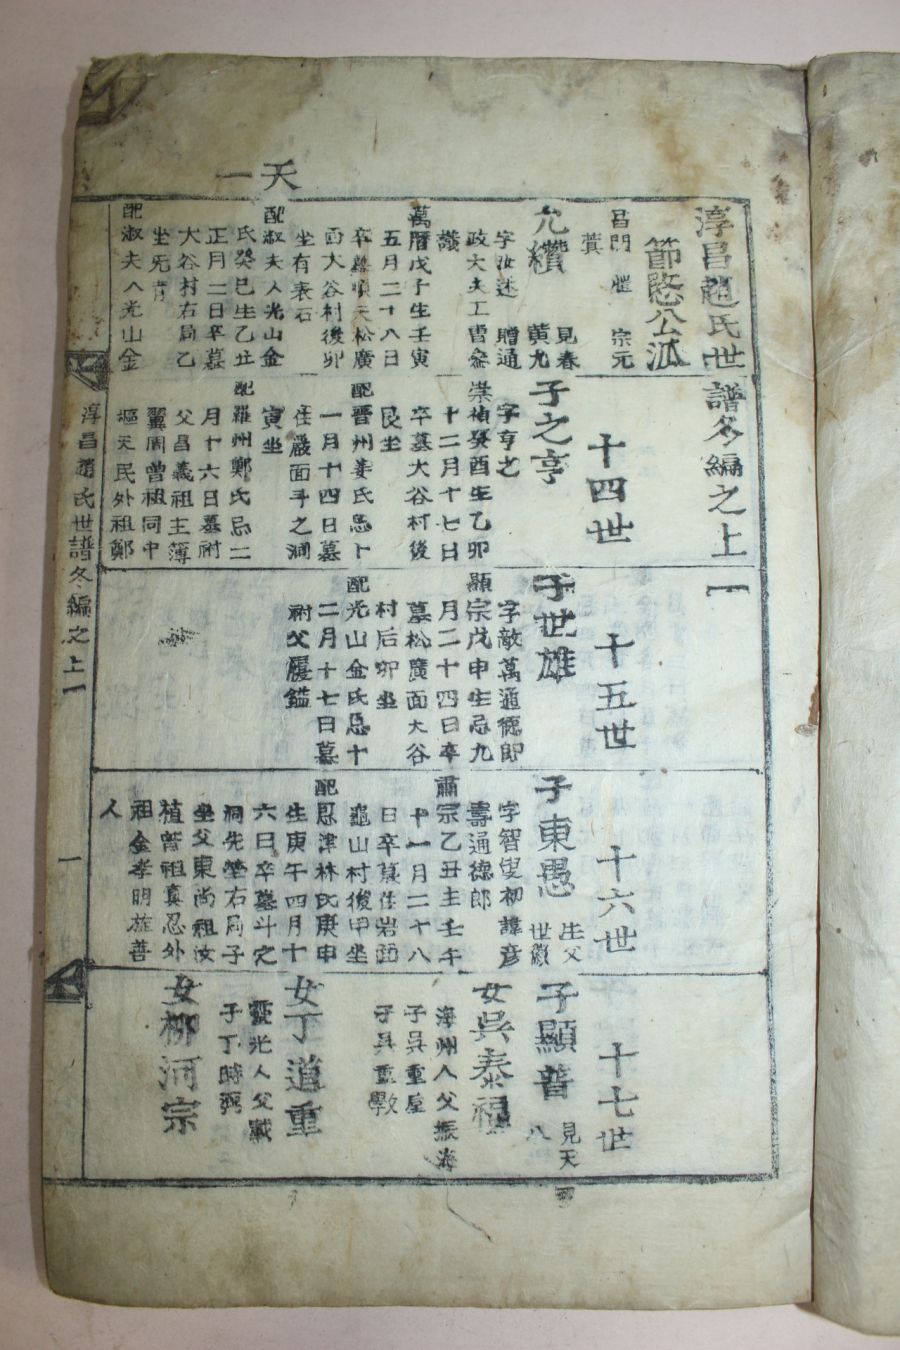 天一
淳昌趙氏世譜冬編之上 一
節愍公派
昌門 愷 宗元
蓂
允纘 見春
黃允
字汝述 贈通
政大夫工曹參
議
萬曆戊子生壬寅
五月二十八日
卒墓順天松廣
面大谷村後卯
坐有表石
配淑夫人光山金
氏癸巳生乙丑
正月二日卒墓
大谷村右局乙
坐
配淑夫人光山金
十四世
子之亨
字亨之
崇禎癸酉生乙卯
十二月十七日
卒墓大谷村後
艮坐
配晋州姜氏忌十
一月十四日墓
住嚴面斗之洞
寅坐
配羅州鄭氏忌二
月十六日墓祔
父昌義祖主簿
翼周曾祖同中
樞天民外祖鄭
十五世
子世雄
字敵萬通德郎
顯宗戊申生忌九
月二十四日卒
墓松廣面大谷
村后卯坐
配光山金氏忌十
二月十七日墓
祔父履鎰
十六世
子東愚 生父
世徽
字智叟初諱彦
壽通德郎
肅宗乙丑生壬午
十一月二十八
日卒墓住岩面
龜山村後甲坐
配恩津林氏庚申
生庚午四月十
六日卒墓斗之
洞先塋右局子
坐父東尚祖汝
植曾祖真忍外
祖金孝明旌善
人
十七世
子顯普 見天
八
女吳泰福
海州人父振海
子吳重
子吳重
女丁道重
靈光人父戴
子丁時弼
女柳河宗
淳昌趙氏世譜冬編之上 一
一